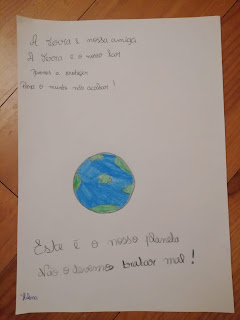 A terra é nossa amiga
A terra é o nosso lar
Vamos a proteger
Para o mundo não acabar!
Este é o nosso planeta
Não o devemos tratar mal!